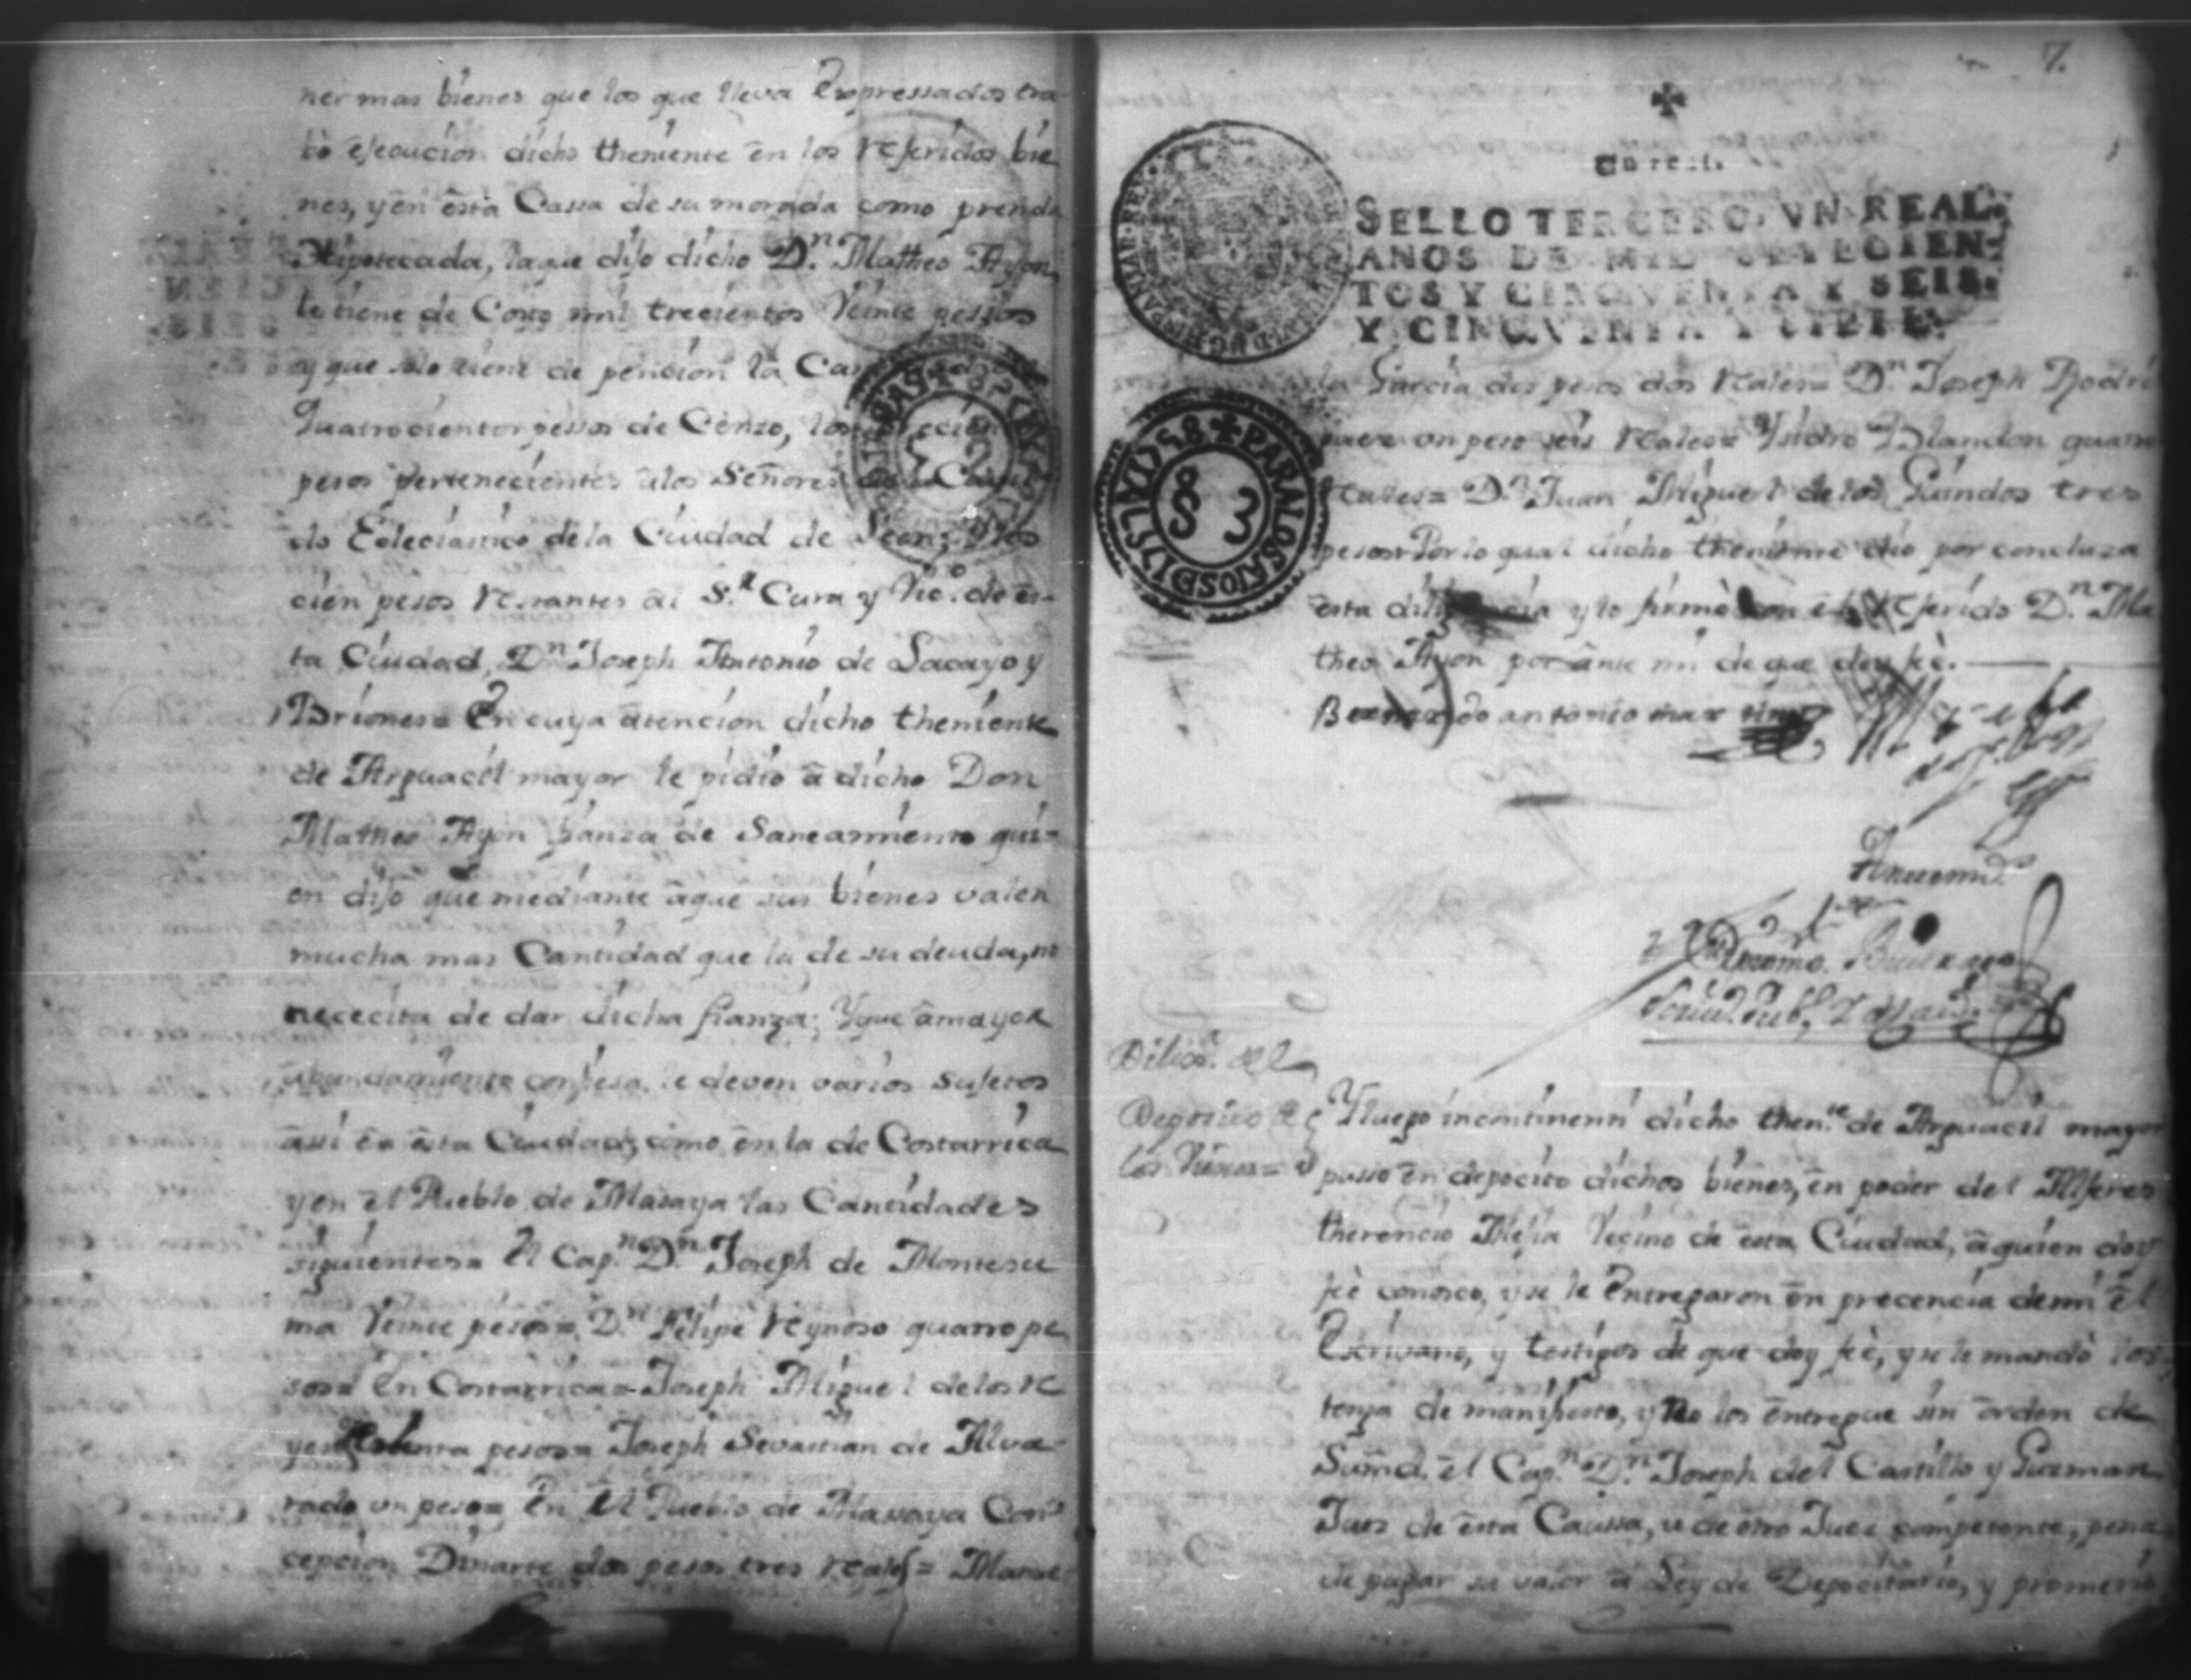 ner mas bienes que los que lleva Expressados tra
bò ejecucion dicho theniente en los referidos bie
nes, y en esta Cassa de su morada como prenda
Hipotecada, la que dijo dicho D.n Matheo Ayon,
le tiene de Costo mil trecientos Veinte pessos
y que solo tiene de pencion la
Quatrocientos pessos de Cènzo, los
pesos pertenecientes a los Señores
do Eclesiastico de la Ciudad de Leon; y los
cien pesos restantes al S.r Cura y Vic.o de es-
ta Ciudad, D.n Joseph Antonio de Lacayo y
Briones= En cuya atencion dicho theniente
de Arguacil mayor le pidio a dicho Don
Matheo Ayon fianza de Saneamiento qui-
en dijo que mediante a que sus bienes valen
mucha mas Cantidad que la de su deuda, no
nececita de dar dicha fianza; Y que a mayor
abundamiento confiesa le deven varios sujetos
assi en esta Ciudad, como en la de Costarrica
y en el Pueblo de Masaya las Cantidades
siguientes= El Cap.n D.n Joseph de Montesu
ma Veinte pesos= D.n Felipe Reynoso quatro pe
sos= En Costarrica= Joseph Miguel de los Re
yes pesos= Joseph Sevastian de Alva-
rado un peso= En el Pueblo de Masaya Con
cepcion Dinarte dos pesos tres reales= Manue
7.
Un real.
SELLO TERCERO, VN REAL,
AÑOS DE MIL SETECIEN-
TOS Y CINQVENTA Y SEIS.
Y CINQVENTA Y SIETE.
PARA LOS AÑOS D 1757 I 1758
la Garcia dos pesos dos reales= D.n Joseph Rodri
guez un peso seis reales= Ysidro Blandon quatro
reales= D.n Juan Miguel de los Guindos tres
pesos= Por lo qual dicho theniente dio por concluza
esta diligencia y lo firmò con el referido D.n Ma
theo Ayon por ante mi de que doy feè.
Bernardo antonio mar tines
Ante mi
Diliga. del
Deposito de
los Vienes=
Y luego incontinenti dicho then.te de Arguacil mayor
pusso en depocito dichos bienes, en poder del Alferes
therencio Mesia Vecino de esta Ciudad, a quien doy
feè conosco, y se le Entregaron en precencia de mi el
Escrivano, y testigos de que doy feè, y se le mandò los
tenga de manifiesto, y no los entregue sin orden de
Sumd. el Cap.n D.n Joseph del Castillo y Guzman
Juez de esta Caussa, u de otro Juez competente, pena
de pagar su valor a Ley de Depocitario, y prometio